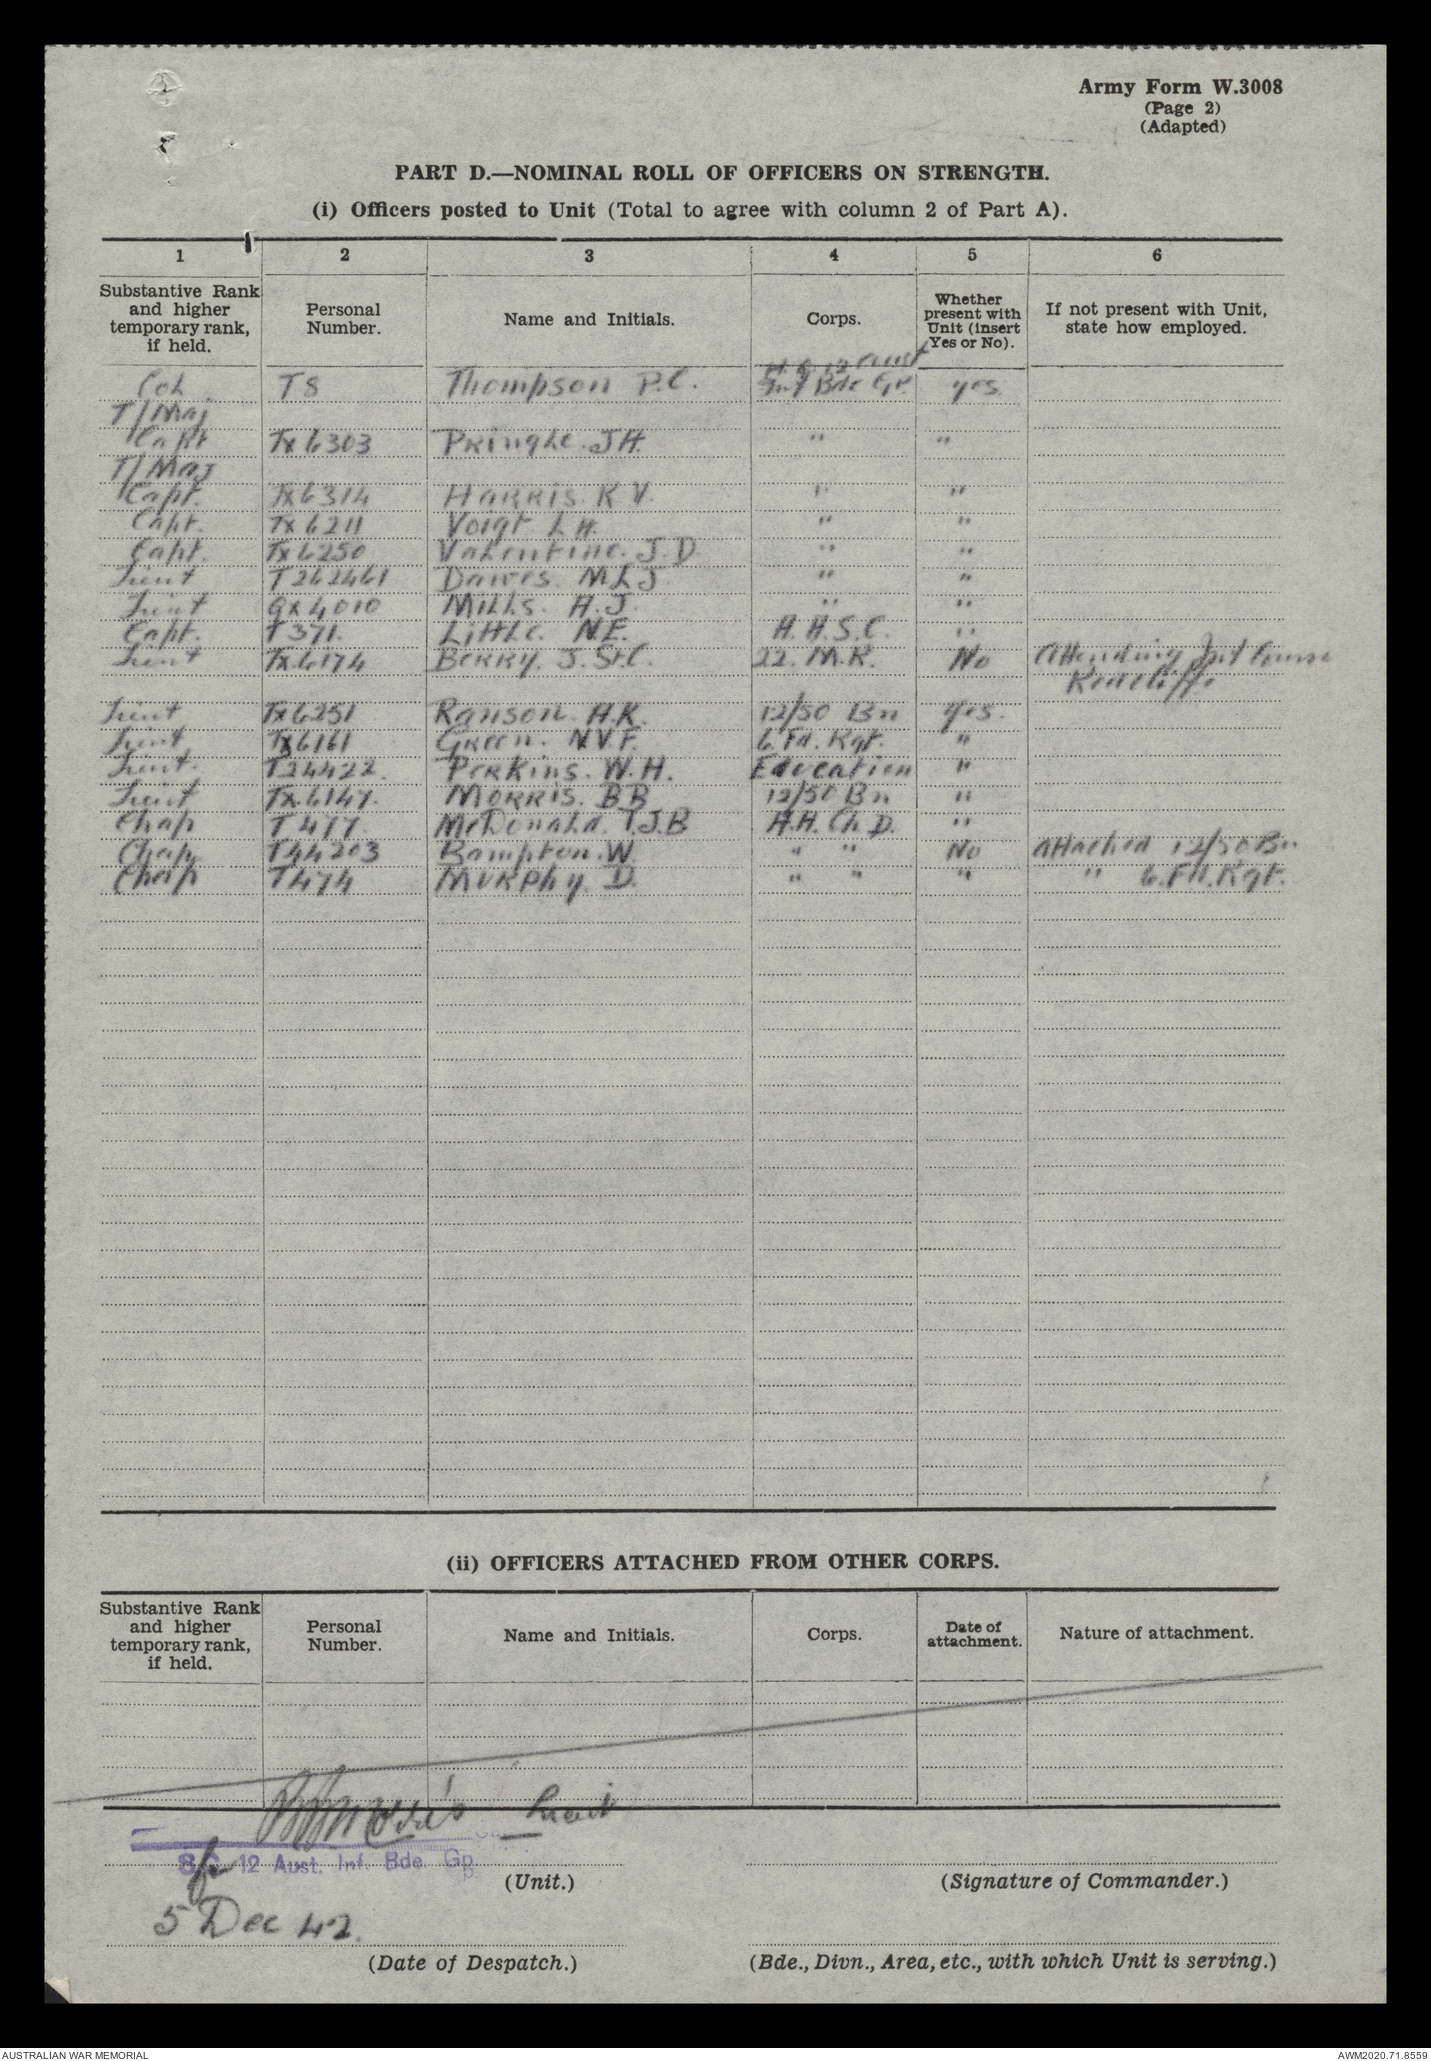 Army Form W.3008
(Page 2)
(Adapted)
PART D.—NOMINAL ROLL OF OFFICERS ON STRENGTH.
(i) Officers posted to Unit (Total to agree with column 2 of Part A).
1 2 3 4 5 6
Substantive Rank and higher temporary rank, if held. Personal Number. Name and Initials. Corps. Whether present with Unit (insert Yes or No). If not present with Unit, state how employed.
H.Q. 12 Aust
Col. T8 Thompson P.C. Inf Bde Gp. yes.
T/Maj
Capt Tx6303 Pringle. J.H. " "
T/Maj
Capt. Tx6314 HARRIS. K V. " "
Capt. Tx6211 Voigt. L H. " "
Capt. Tx6250 Valentine. J.D " "
Lieut T262461 Dawes. M L J. " "
Lieut Qx4010 Mills. H.J. " "
Capt. T371. Little. N.E. A.A.S.C. "
Lieut Tx.6174 BERRY. J. St.C. 22. M.R. No Attending Jnt Course
Redcliffe
Lieut Tx6251 Ranson. H.K. 12/50 Bn yes.
Lieut Tx6161 Green. N.V.F. 6. Fd. Rgt. "
Lieut. T24422. Perkins. W.H. Education "
Lieut Tx.6147. MORRIS. B B 12/50 Bn "
Chap T477. McDonald. T.J.B A.A. Ch D. "
Chap T44203 Bampton. W. " " No Attached 12/50 Bn
Chap T474 MURPhy D. " " " " 6. Fd. Rgt.
(ii) OFFICERS ATTACHED FROM OTHER CORPS.
Substantive Rank and higher temporary rank, if held. Personal Number. Name and Initials. Corps. Date of attachment. Nature of attachment.
BBMorris Lieut
for S.C. 12 Aust. Inf. Bde. Gp
(Unit.) (Signature of Commander.)
5 Dec 42.
(Date of Despatch.) (Bde., Divn., Area, etc., with which Unit is serving.)
AUSTRALIAN WAR MEMORIAL AWM2020.71.8559